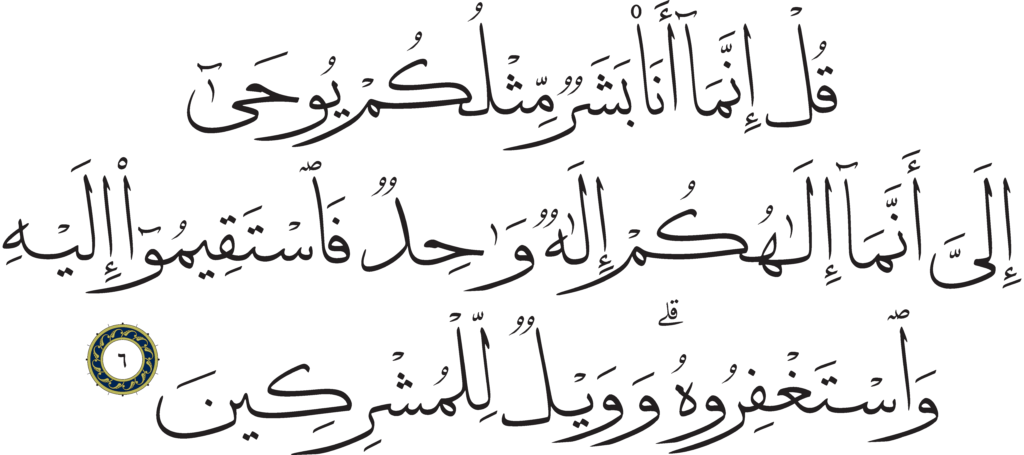 قُلْ إِنَّمَآ أَنَا۠ بَشَرٌ مِّثْلُكُمْ يُوحَىٰٓ
إِلَىَّ أَنَّمَآ إِلَـٰهُكُمْ إِلَـٰهٌ وَٰحِدٌ فَٱسْتَقِيمُوٓا۟ إِلَيْهِ
وَٱسْتَغْفِرُوهُ ۗ وَوَيْلٌ لِّلْمُشْرِكِينَ ٦